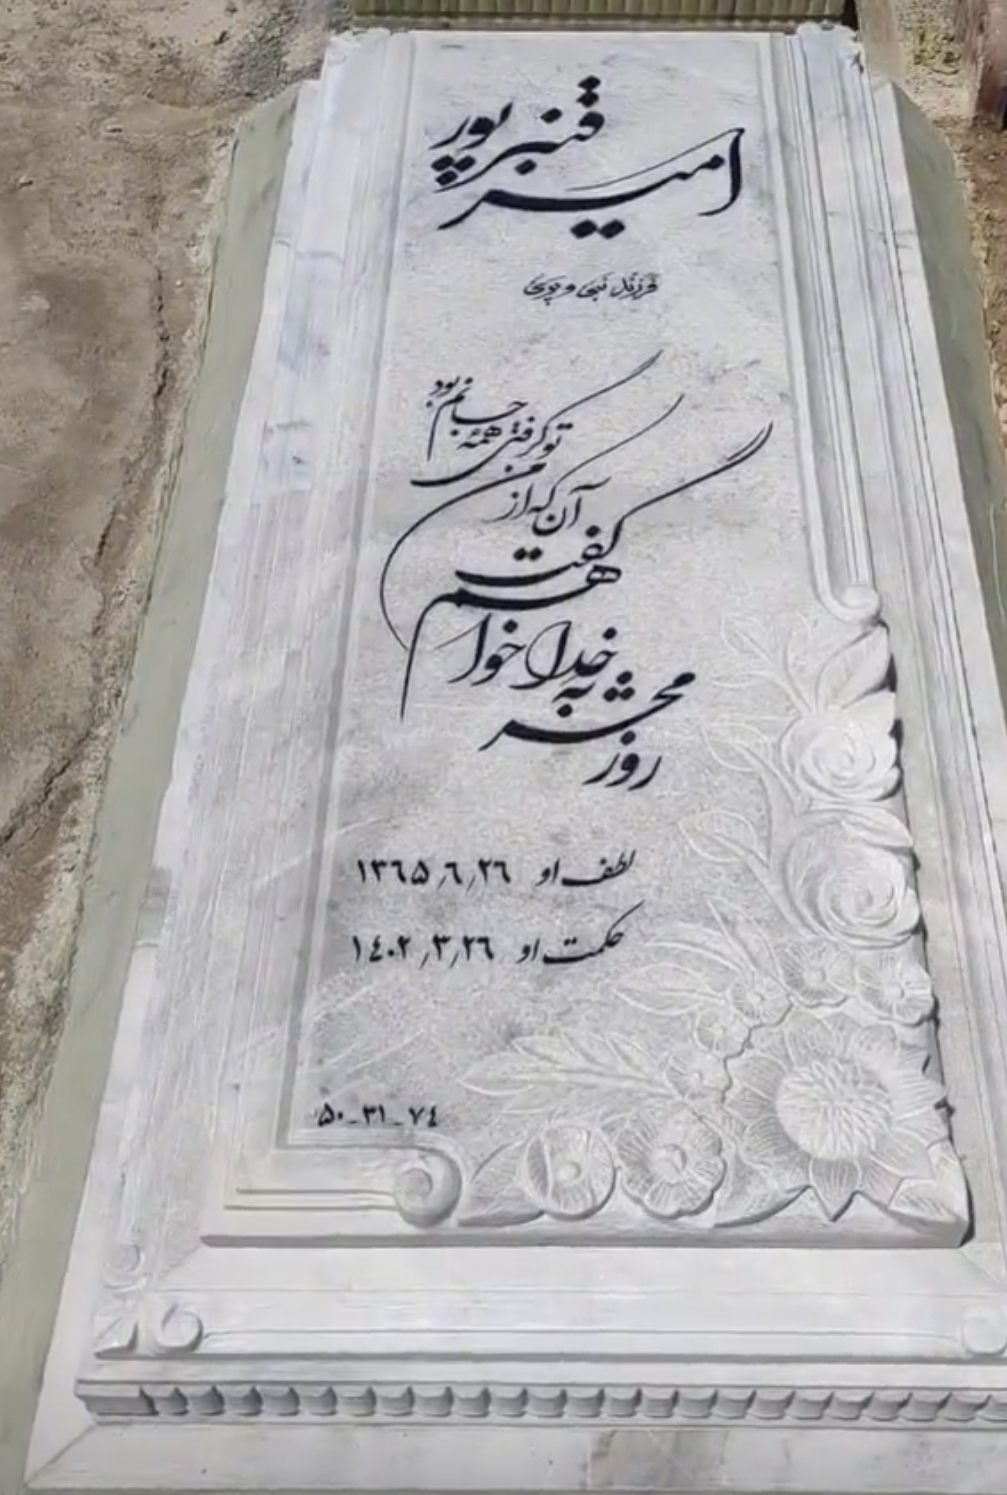 امیر قنبرپور
فرزند نبی و چوی
روز محشر به خدا خواهم گفت
آن که از من تو گرفتی همه جانم بود
لطف او ۱۳۶۵٫۶٫۲۶
حکمت او ۱۴۰۲٫۳٫۲۶
۵۰_۳۱_۷۴